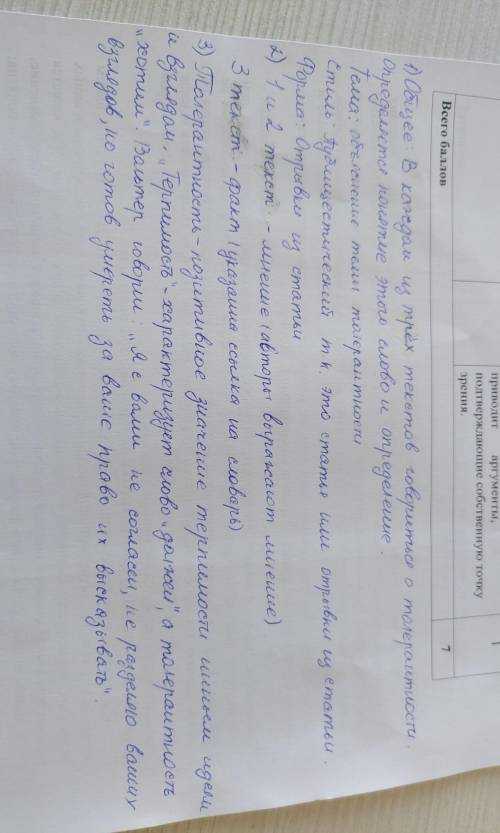 приводит аргументы,
подтверждающие собственную точку
зрения.
1
Всего баллов
7
1) Общее: В каждом из трёх текстов говориться о толерантности.
Определяется понятие этого слово и определение.
Тема: объяснение темы толерантности
Стиль: Публицестический т.к. это статья или отрывки из статьи.
Форма: Отрывки из статьи
2) 1 и 2 текст - мнение (авторы выражают мнение)
3 текст - факт (указана ссылка на словарь)
3) Толерантность - позитивное значение терпимости к иным идеям
и взглядам. "Терпимость" - характеризует слово "должен", а толерантность
"хотим". Вольтер говорил: "Я с вами не согласен, не разделяю ваших
взглядов, но готов умереть за ваше право их высказывать".